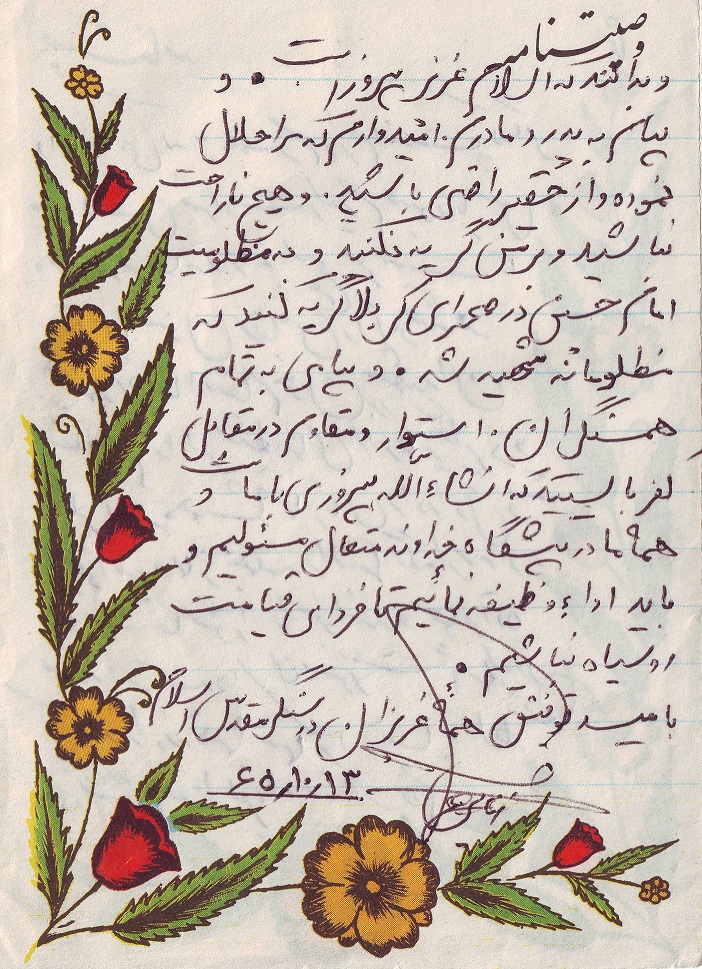 وصیتنامه
و بدانند که اسلام عزیز پیروز است . و
پیام به پدر و مادرم . امیدوارم که مرا حلال
نموده و از حقیر راضی باشید . و هیچ ناراحت
نباشید و برایم گریه نکنید و به مظلومیت
امام حسین در صحرای کربلا گریه کنید که
مظلومانه شهید شد . و پیامی به تمام
همسنگران . استوار و مقاوم در مقابل
کفر بایستید که انشاءالله پیروزی با ماست و
همه ما در پیشگاه خداوند متعال مسئولیم و
باید اداء وظیفه نمائیم تا فردای قیامت
روسیاه نباشیم .
بامید توفیق همهٔ عزیزان در سنگر مقدس اسلام
۶۵،۱۰،۱۳